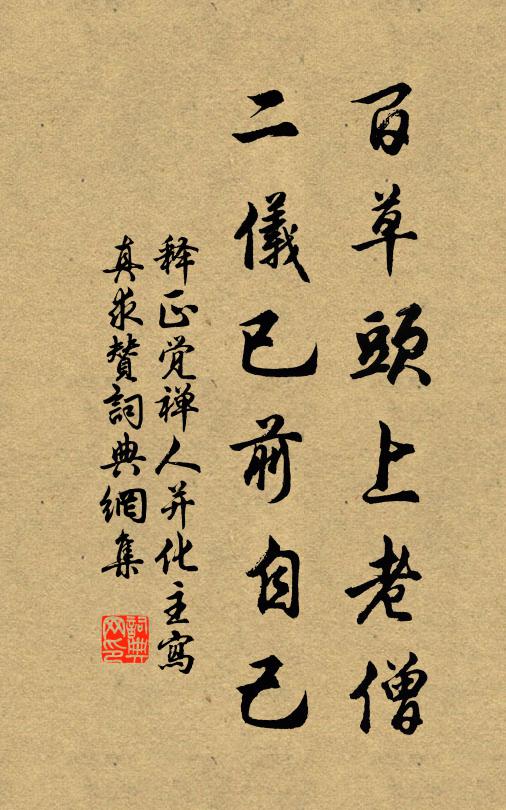 百草頭上老僧
二儀已前自己
释正觉禅人并化主寫
真求贊詞典網集
詞典网印